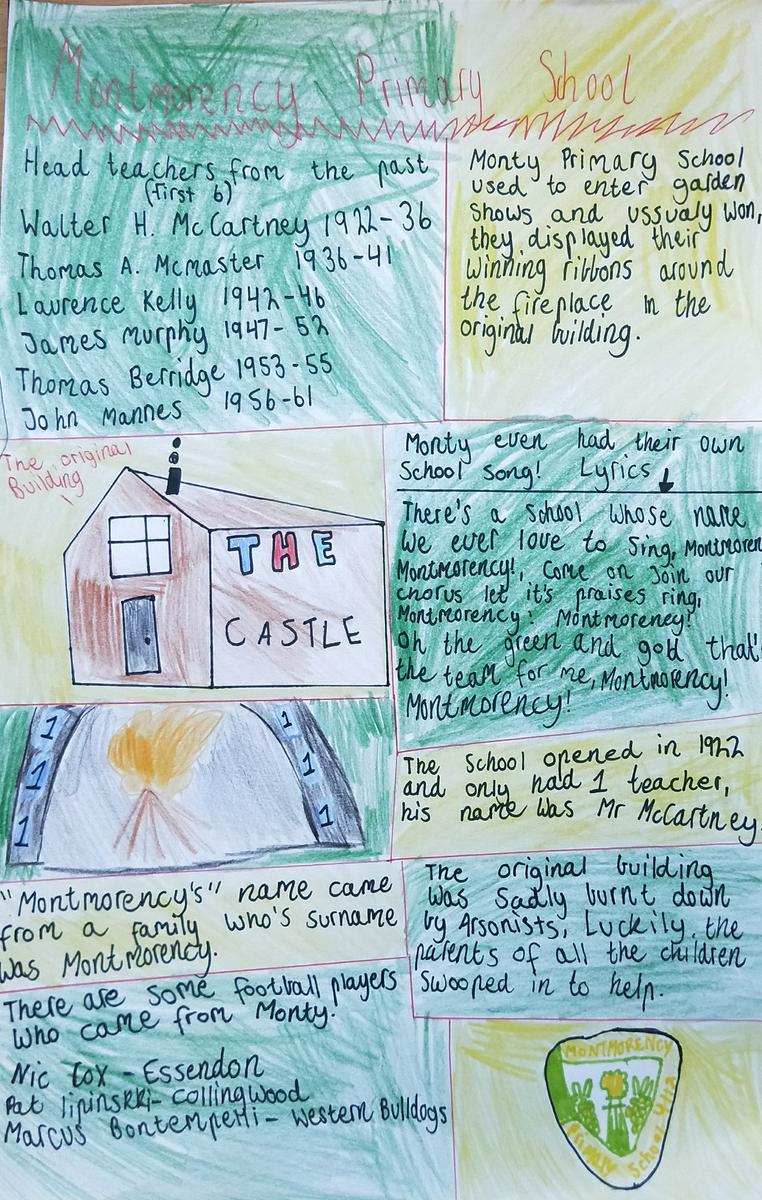 Montmorency Primary School
Head teachers from the past
(first 6)
Walter H. McCartney 1922-36
Thomas A. Mcmaster 1936-41
Laurence Kelly 1942-46
James Murphy 1947-52
Thomas Berridge 1953-55
John Mannes 1956-61
Monty Primary School
used to enter garden
shows and ussualy won,
they displayed their
winning ribbons around
the fireplace in the
original building.
The original
Building
THE
CASTLE
Monty even had their own
School song! Lyrics
There's a school whose name
We ever love to sing, Montmoren
Montmorency!, Come on Join our
chorus let it's praises ring,
Montmorency! Montmorency!
Oh the green and gold that's
the team for me, Montmorency!
Montmorency!
1 1
1 1
1 1
The School opened in 1922
and only had 1 teacher,
his name was Mr McCartney.
"Montmorency's" name came
from a family who's surname
was Montmorency.
The original building
was sadly burnt down
by Arsonists, Luckily, the
parents of all the children
swooped in to help.
There are some football players
who came from Monty.
Nic Cox - Essendon
Pat lipinskki- Collingwood
Marcus Bontempelli - Western Bulldogs
MONTMORENCY
PRIMARY School 4112